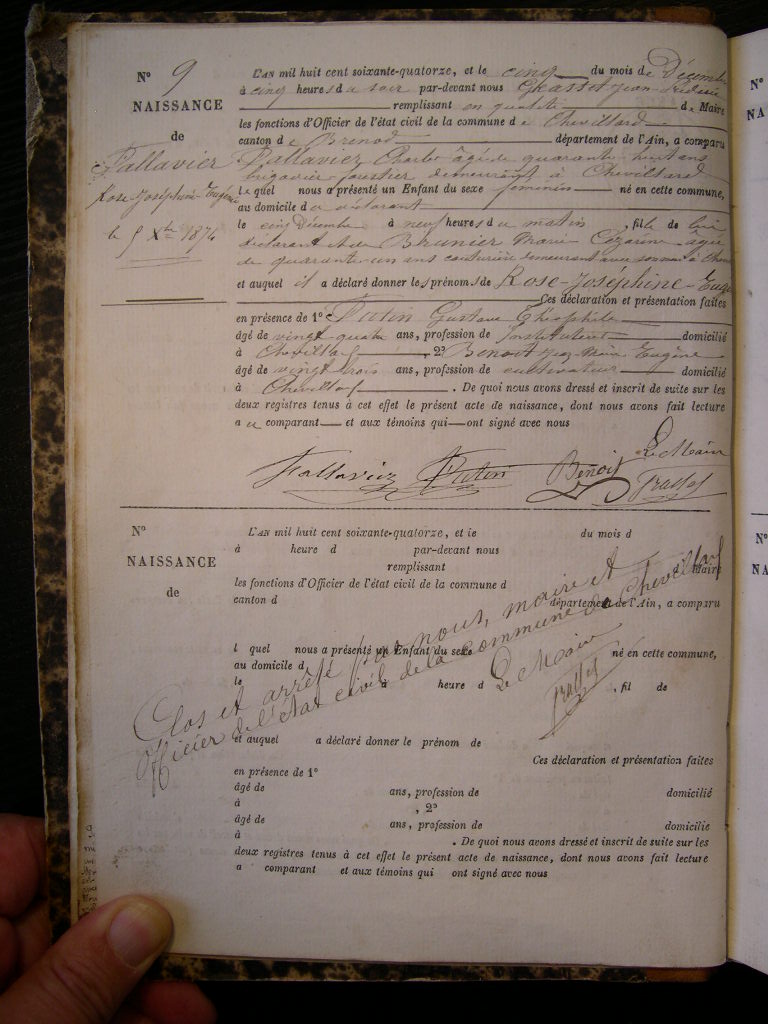 N° 9
NAISSANCE
de
Fallavier
Rose Joséphine Eugénie
le 5 Xbre 1874
L'AN mil huit cent soixante-quatorze, et le cinq du mois de Décembre
à cinq heures du soir par-devant nous Jean
remplissant en qualité de Maire
les fonctions d'Officier de l'état civil de la commune de Chevillard
canton de Brenod département de l'Ain, a comparu
Fallavier Charles âgé de quarante huit ans
brigadier forestier demeurant à Chevillard
lequel nous a présenté un Enfant du sexe féminin né en cette commune,
au domicile du déclarant
le cinq Décembre à neuf heures du matin, fille de lui
déclarant et de Brunier Marie Cézarine âgée
de quarante-un ans couturière demeurant avec à
et auquel il a déclaré donner les prénoms de Rose-Joséphine-Eugé
Ces déclaration et présentation faites
en présence de 1° Gustave Théophile
âgé de vingt quatre ans, profession de Instituteur domicilié
à Chevillard, 2° Benoit Eugène
âgé de vingt trois ans, profession de cultivateur domicilié
à Chevillard. De quoi nous avons dressé et inscrit de suite sur les
deux registres tenus à cet effet le présent acte de naissance, dont nous avons fait lecture
a comparant et aux témoins qui ont signé avec nous
Le Maire
Fallavier Benoit
N°
NAISSANCE
de
L'AN mil huit cent soixante-quatorze, et le du mois d
à heure d par-devant nous
remplissant d Maire
les fonctions d'Officier de l'état civil de la commune d
canton d département de l'Ain, a comparu
l quel nous a présenté un Enfant du sexe né en cette commune,
au domicile d
le à heure d , fil de
Clos et arrêté par nous, maire et
Officier de l'état civil de la commune de Chevillard
Le Maire
et auquel a déclaré donner le prénom de
Ces déclaration et présentation faites
en présence de 1°
âgé de ans, profession de domicilié
à , 2°
âgé de ans, profession de domicilié
à . De quoi nous avons dressé et inscrit de suite sur les
deux registres tenus à cet effet le présent acte de naissance, dont nous avons fait lecture
a comparant et aux témoins qui ont signé avec nous
N°
NA
N°
NA